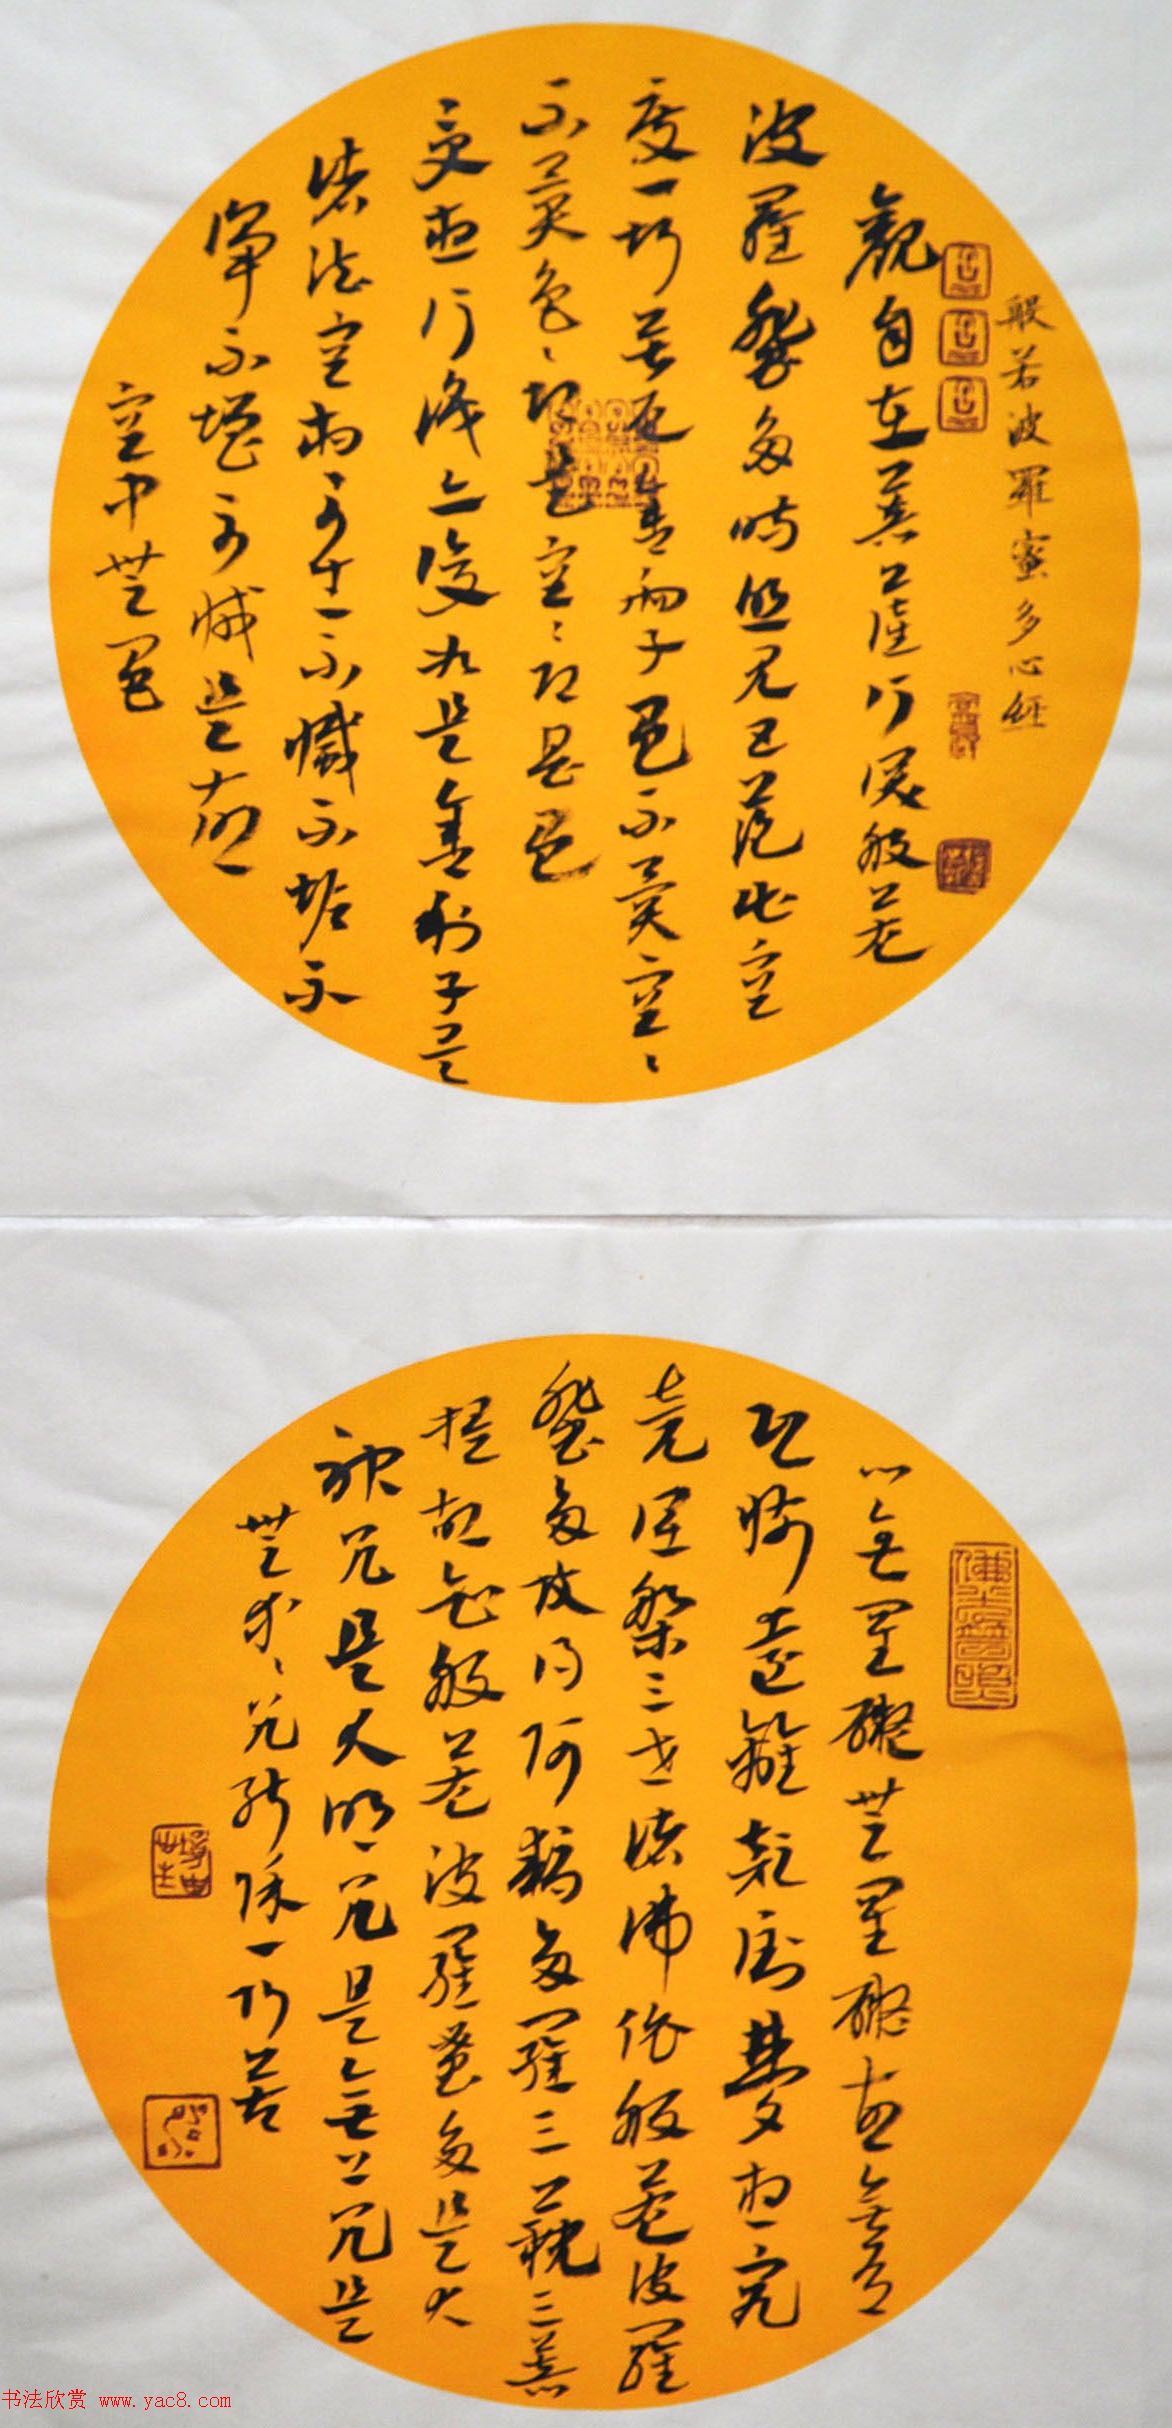 般若波羅蜜多心經
觀自在菩薩行深般若
波羅蜜多時照見五蘊皆空
度一切苦厄舍利子色不異空〻
不異色〻即是空〻即是色
受想行識亦復如是舍利子是
諸法空相不生不滅不垢不
淨不增不減是故
空中無色
心無罣礙無罣礙故無有
恐怖遠離顛倒夢想究
竟涅槃三世諸佛依般若波羅
蜜多故得阿耨多羅三藐三菩
提故知般若波羅蜜多是大
神咒是大明咒是無上咒是
無等〻咒能除一切苦
书法欣赏 www.yac8.com